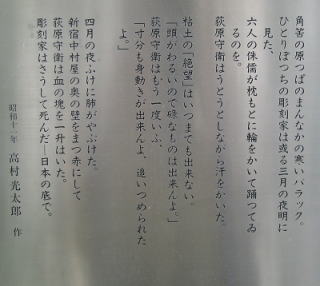 角筈の原つぱのまんなかの寒いバラック。
ひとりぼつちの彫刻家は或る三月の夜明に
見た、
六人の侏儒が枕もとに輪をかいて踊つてゐ
るのを。
荻原守衛はうとうとしながら汗をかいた。
粘土の「絶望」はいつまでも出来ない。
「頭がわるいので碌なものは出来んよ。」
荻原守衛はもう一度いふ、
「寸分も身動きが出来んよ、追いつめられた
よ。」
四月の夜ふけに肺がやぶけた。
新宿中村屋の奥の壁をまつ赤にして
荻原守衛は血の塊を一升はいた。
彫刻家はさうして死んだ―日本の底で。
昭和十一年 高村光太郎 作